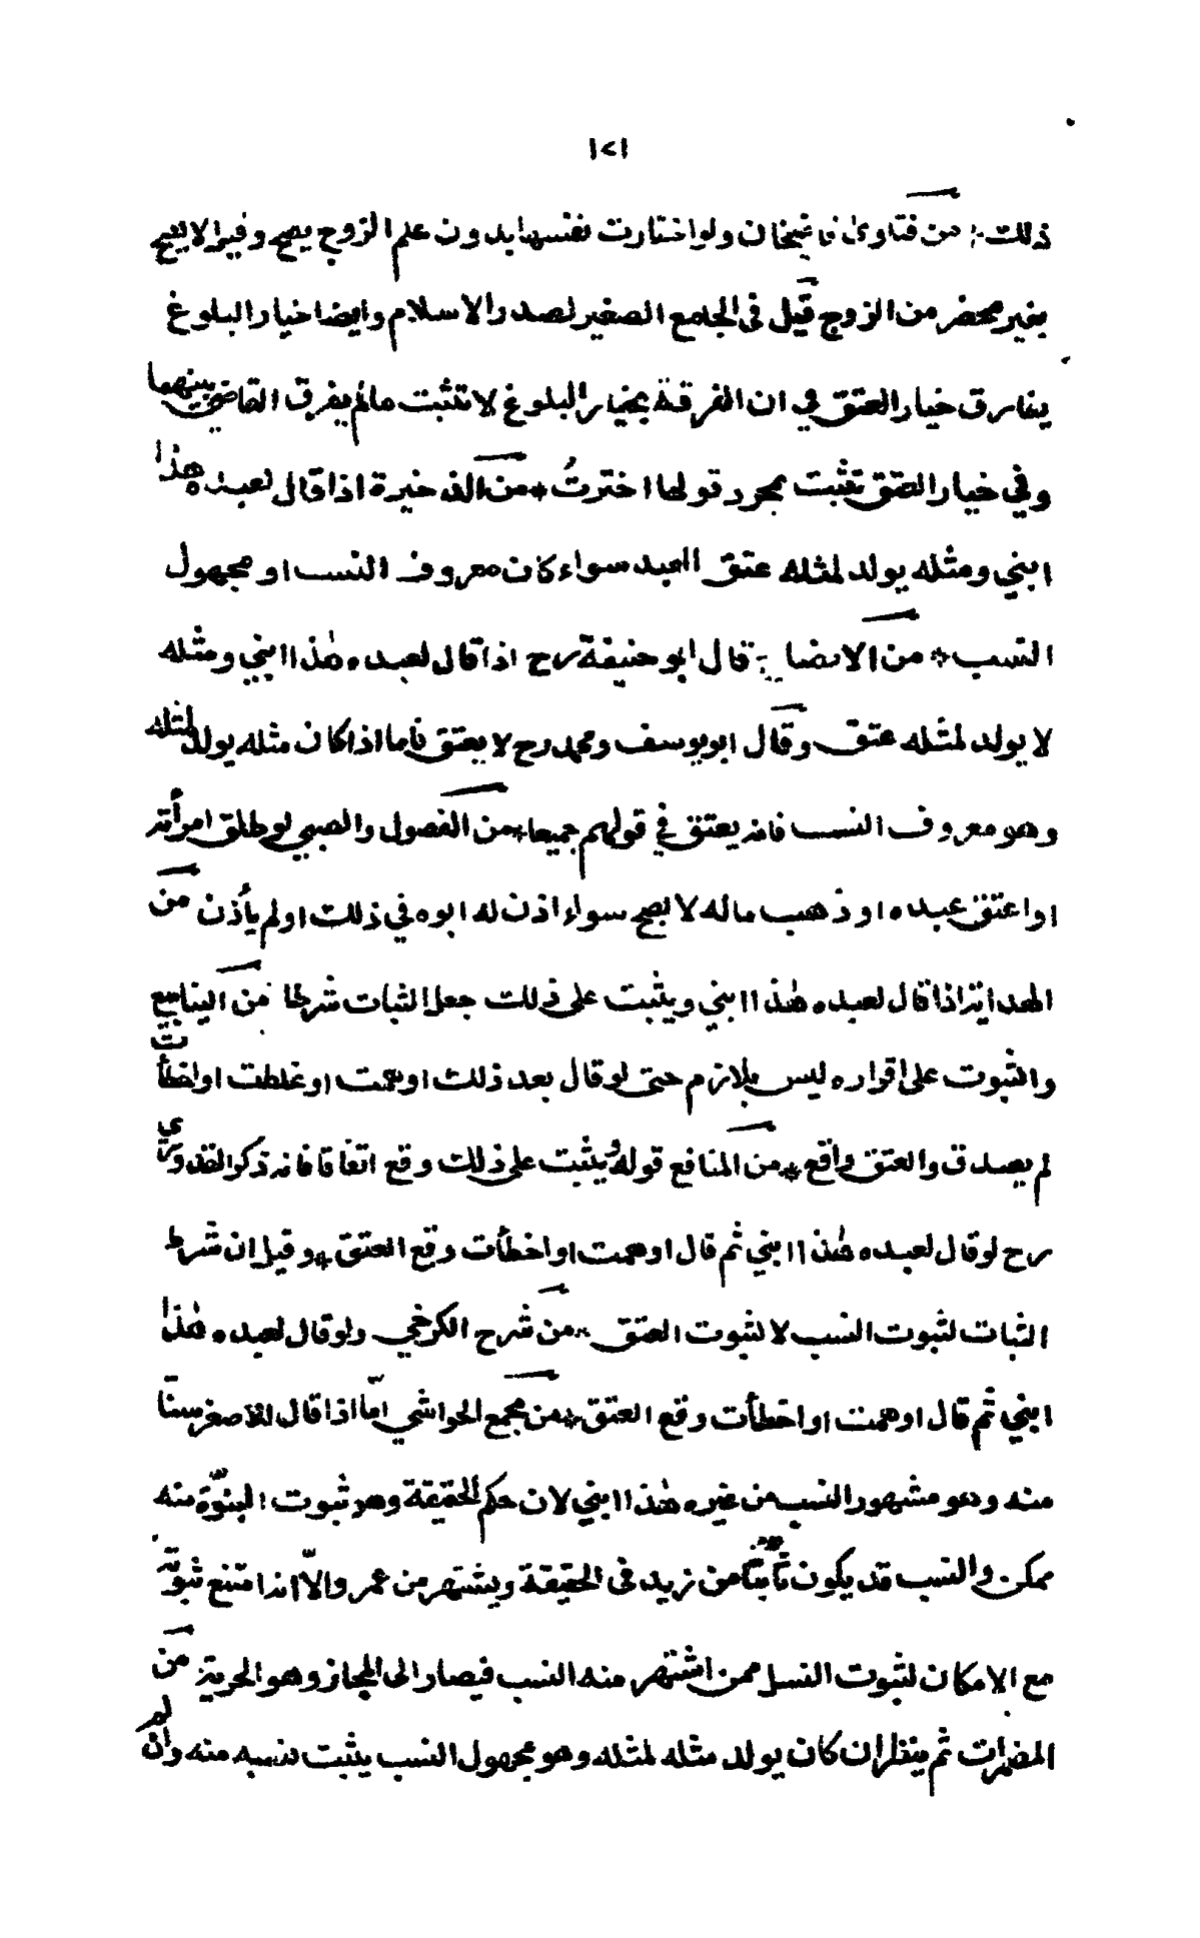 ١٧١
ذلك ❊ من فتاوى قاضيخان ولو اختارت نفسها بدون علم الزوج يصح وقيل لا يصح
بغير محضر من الزوج قيل فى الجامع الصغير لصدر الاسلام وايضا خيار البلوغ
يفارق خيار العتق في ان الفرقة بخيار البلوغ لا تثبت مالم يفرق القاضي بينهما
وفي خيار العتق تثبت بمجرد قولها اخترتُ ❊ من الذخيرة اذا قال لعبده هذا
ابني ومثله يولد لمثله عتق العبد سواء كان معروف النسب او مجهول
النسب ❊ من الايضاح قال ابو حنيفة رح اذا قال لعبده هذا ابني ومثله
لا يولد لمثله عتق وقال ابو يوسف ومحمد رح لا يعتق فاما اذا كان مثله يولد لمثله
وهو معروف النسب فانه يعتق في قولهم جميعا ❊ من الفصول والصبي لو طلق امرأته
او اعتق عبده او ذهب ماله لا يصح سواء اذن له ابوه في ذلك او لم يأذن من
الهداية اذا قال لعبده هذا ابني ويثبت على ذلك جعل الثبات شرطا من الينابيع
والثبوت على اقراره ليس بلازم حتى لو قال بعد ذلك اوهمت او غلطت او اخطأت
لم يصدق والعتق واقع ❊ من المنافع قوله ويثبت على ذلك وقع اتفاقا فانه ذكر القدوري
رح لو قال لعبده هذا ابني ثم قال اوهمت او اخطأت وقع العتق ❊ وقيل ان شرط
الثبات لثبوت النسب لا لثبوت العتق ❊ من شرح الكرخي ولو قال لعبده هذا
ابني ثم قال اوهمت او اخطأت وقع العتق ❊ من مجمع الحواشي امّا اذا قال للأصغر سنّا
منه وهو مشهور النسب من غيره هذا ابني لان حكم الحقيقة وهو ثبوت البنوّة منه
ممكن والنسب قد يكون ثابتًا من زيد فى الحقيقة ويشتهر من عمر والاّ انه امتنع ثبوته
مع الامكان لثبوت النسل ممن اشتهر منه النسب فيصار الى المجاز وهو الحرية من
المضمرات ثم ينظر ان كان يولد مثله لمثله وهو مجهول النسب يثبت نسبه منه وان لم